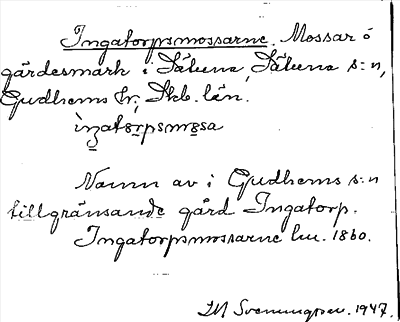 Ingatorpsmossarne. Mossar å
gärdesmark i Sätuna, Sätuna s:n,
Gudhems hr, Skb. län.
ìngatårpsmåsa
Namn av i Gudhems s:n
tillgränsande gård Ingatorp.
Ingatorpsmossarne lm. 1860.
IM Svenungsson. 1947.